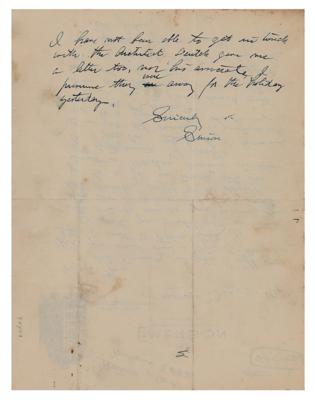 I have not been able to get in touch
with the Architect Deutch gave me
a letter too, nor his associate, I
presume they were away for the holiday
yesterday.
Sincerely
Simon